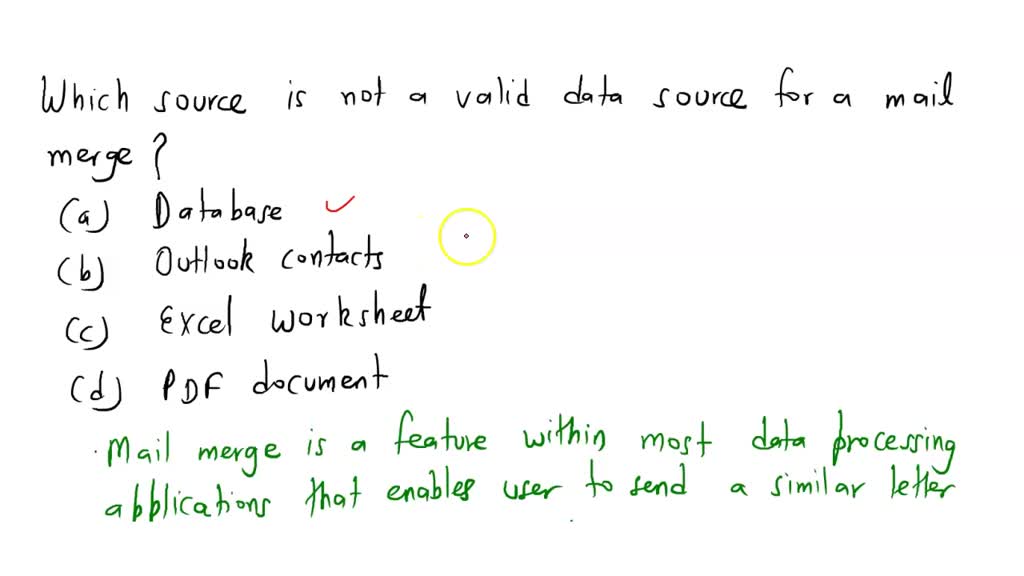 Which source is not a valid data source for a mail
merge?
(a) Database
(b) Outlook contacts
(c) Excel worksheet
(d) PDF document
Mail merge is a feature within most data processing
abblications that enables user to send a similar letter